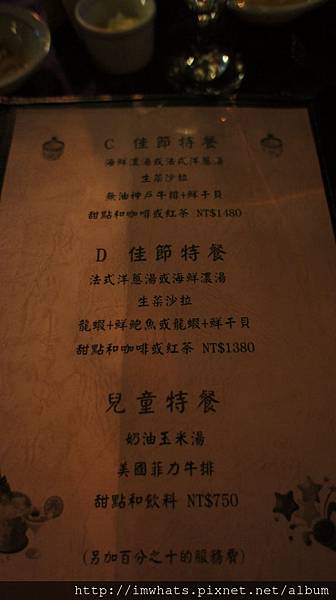 C 佳節特餐
海鮮濃湯或法式洋蔥湯
生菜沙拉
無油神戶牛排+鮮干貝
甜點和咖啡或紅茶 NT$1480
D 佳節特餐
法式洋蔥湯或海鮮濃湯
生菜沙拉
龍蝦+鮮鮑魚或龍蝦+鮮干貝
甜點和咖啡或紅茶 NT$1380
兒童特餐
奶油玉米湯
美國菲力牛排
甜點和飲料 NT$750
(另加百分之十的服務費)
http://imwhats.pixnet.net/album